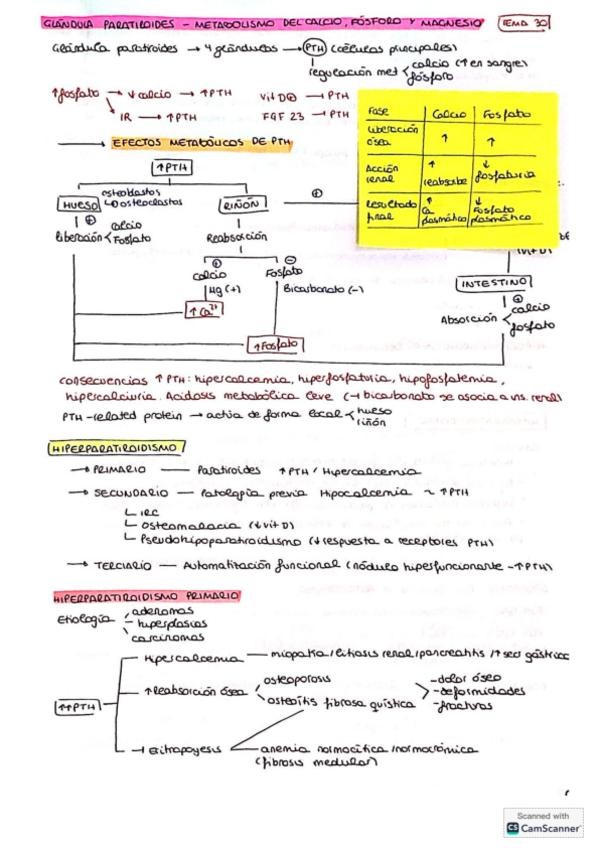 GLÁNDULA PARATIROIDES - METABOLISMO DEL CALCIO, FÓSFORO Y MAGNESIO TEMA 30
Glándula paratiroides → 4 glándulas → PTH (células principales)
regulación met calcio (↑ en sangre)
fósforo
↑ fosfato → ↓ calcio → ↑PTH vit D⊕ → PTH
IR → ↑PTH FGF 23 → PTH
→ EFECTOS METABÓLICOS DE PTH
Fase Calcio Fosfato
Liberación ósea ↑ ↑
Acción renal ↑ reabsorbe ↓ fosfaturia
Resultado final ↑ Ca plasmático ↓ Fosfato plasmático
↑PTH
HUESO osteoblastos
osteoclastos
RIÑÓN ⊕
⊕ Liberación calcio
Fosfato
Reabsorción
⊕ calcio ⊖ Fosfato
Mg (+) Bicarbonato (-)
↑ Ca²⁺
↑ Fosfato
INTESTINO
⊕
Absorción calcio
fosfato
consecuencias ↑ PTH: hipercalcemia, hiperfosfaturia, hipofosfatemia,
hipercalciuria. Acidosis metabólica leve
PTH-related protein → actúa de forma local hueso
riñón
HIPERPARATIROIDISMO
→ PRIMARIO — Paratiroides ↑PTH / Hipercalcemia
→ SECUNDARIO — Patología previa Hipocalcemia ~ ↑PTH
IRC
Osteomalacia (↓vit D)
Pseudohipoparatiroidismo (↓ respuesta a receptores PTH)
→ TERCIARIO — Automatización funcional (nódulo hiperfuncionante - ↑PTH)
HIPERPARATIROIDISMO PRIMARIO
Etiología adenomas
hiperplasias
carcinomas
↑↑PTH
Hipercalcemia — miopatía / litiasis renal / pancreatitis / ↑ secr gástrica
↑ Reabsorción ósea osteoporosis
osteítis fibrosa quística
-dolor óseo
-deformidades
-fracturas
Eritropoyesis — anemia normocítica / normocrómica
(fibrosis medular)
Scanned with
CS CamScanner